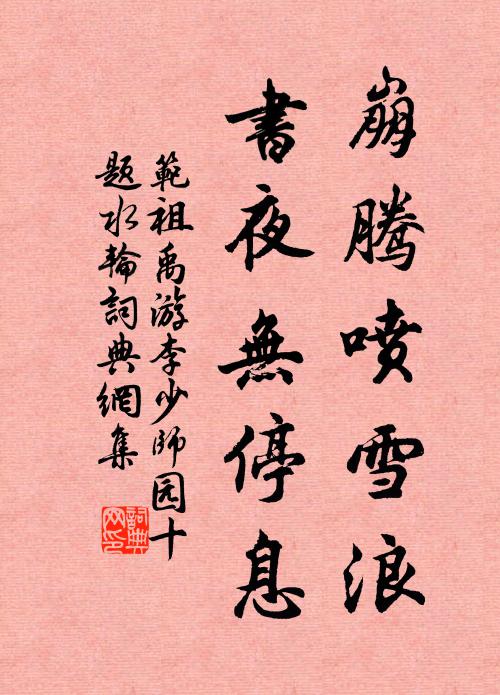 崩腾喷雪浪
書夜無停息
範祖禹游李少師园十
题水輪詞典網集
詞典网印